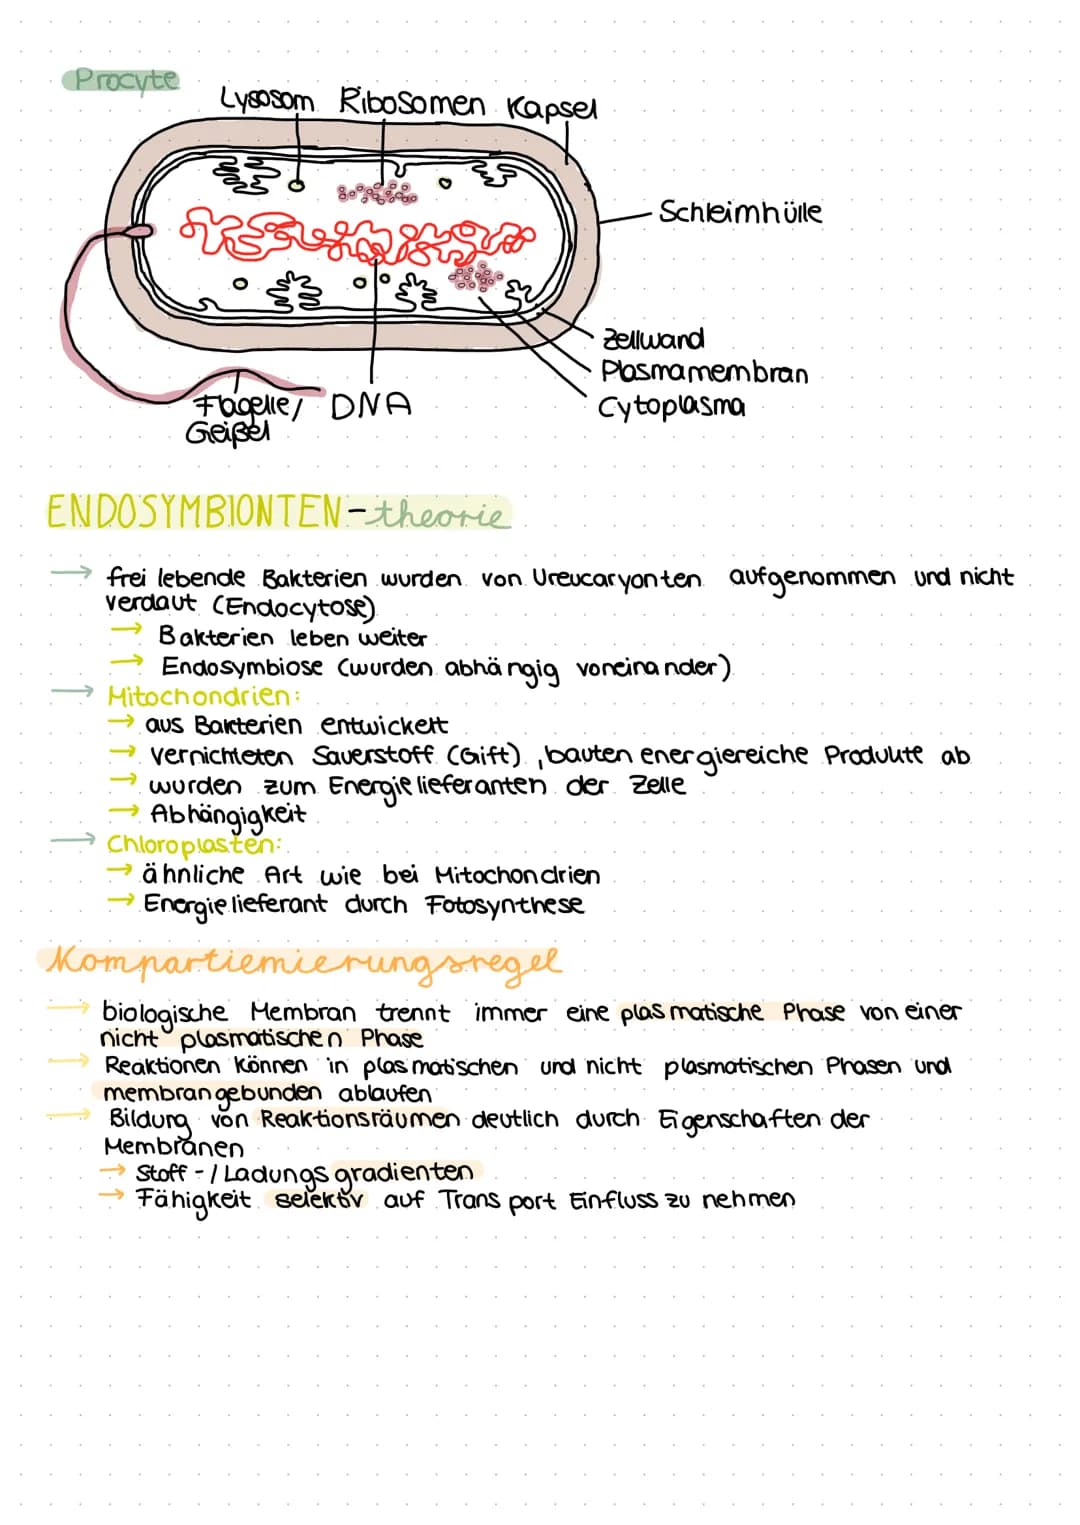 Procyte
Lysosom Ribosomen Kapsel
Schleimhülle
Zellwand
Plasmamembran
Cytoplasma
Flagelle/ DNA
Geißel
ENDOSYMBIONTEN-theorie
→ frei lebende Bakterien wurden von Ureucaryonten aufgenommen und nicht
verdaut (Endocytose)
→ Bakterien leben weiter
→ Endosymbiose (wurden abhängig voneinander)
→ Mitochondrien:
→ aus Bakterien entwickelt
→ vernichteten Sauerstoff (Gift), bauten energiereiche Produkte ab
→ wurden zum Energielieferanten der Zelle
→ Abhängigkeit
→ Chloroplasten:
→ ähnliche Art wie bei Mitochondrien
→ Energielieferant durch Fotosynthese
Kompartiemierungsregel
→ biologische Membran trennt immer eine plasmatische Phase von einer
nicht plasmatischen Phase
→ Reaktionen können in plasmatischen und nicht plasmatischen Phasen und
membrangebunden ablaufen
→ Bildung von Reaktionsräumen deutlich durch Eigenschaften der
Membranen
→ Stoff-/Ladungsgradienten
→ Fähigkeit selektiv auf Transport Einfluss zu nehmen